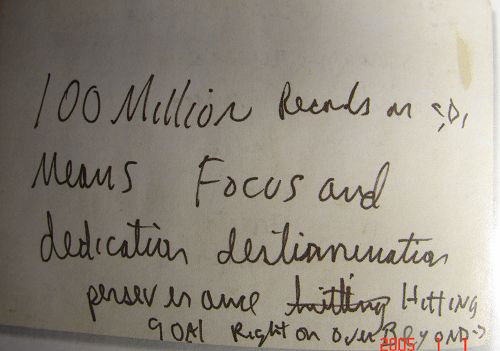 100 Million Records or
Means Focus and
dedication destiannination
perserverance hitting Hitting
GOAl Right on over BeyonD
2005 1 1